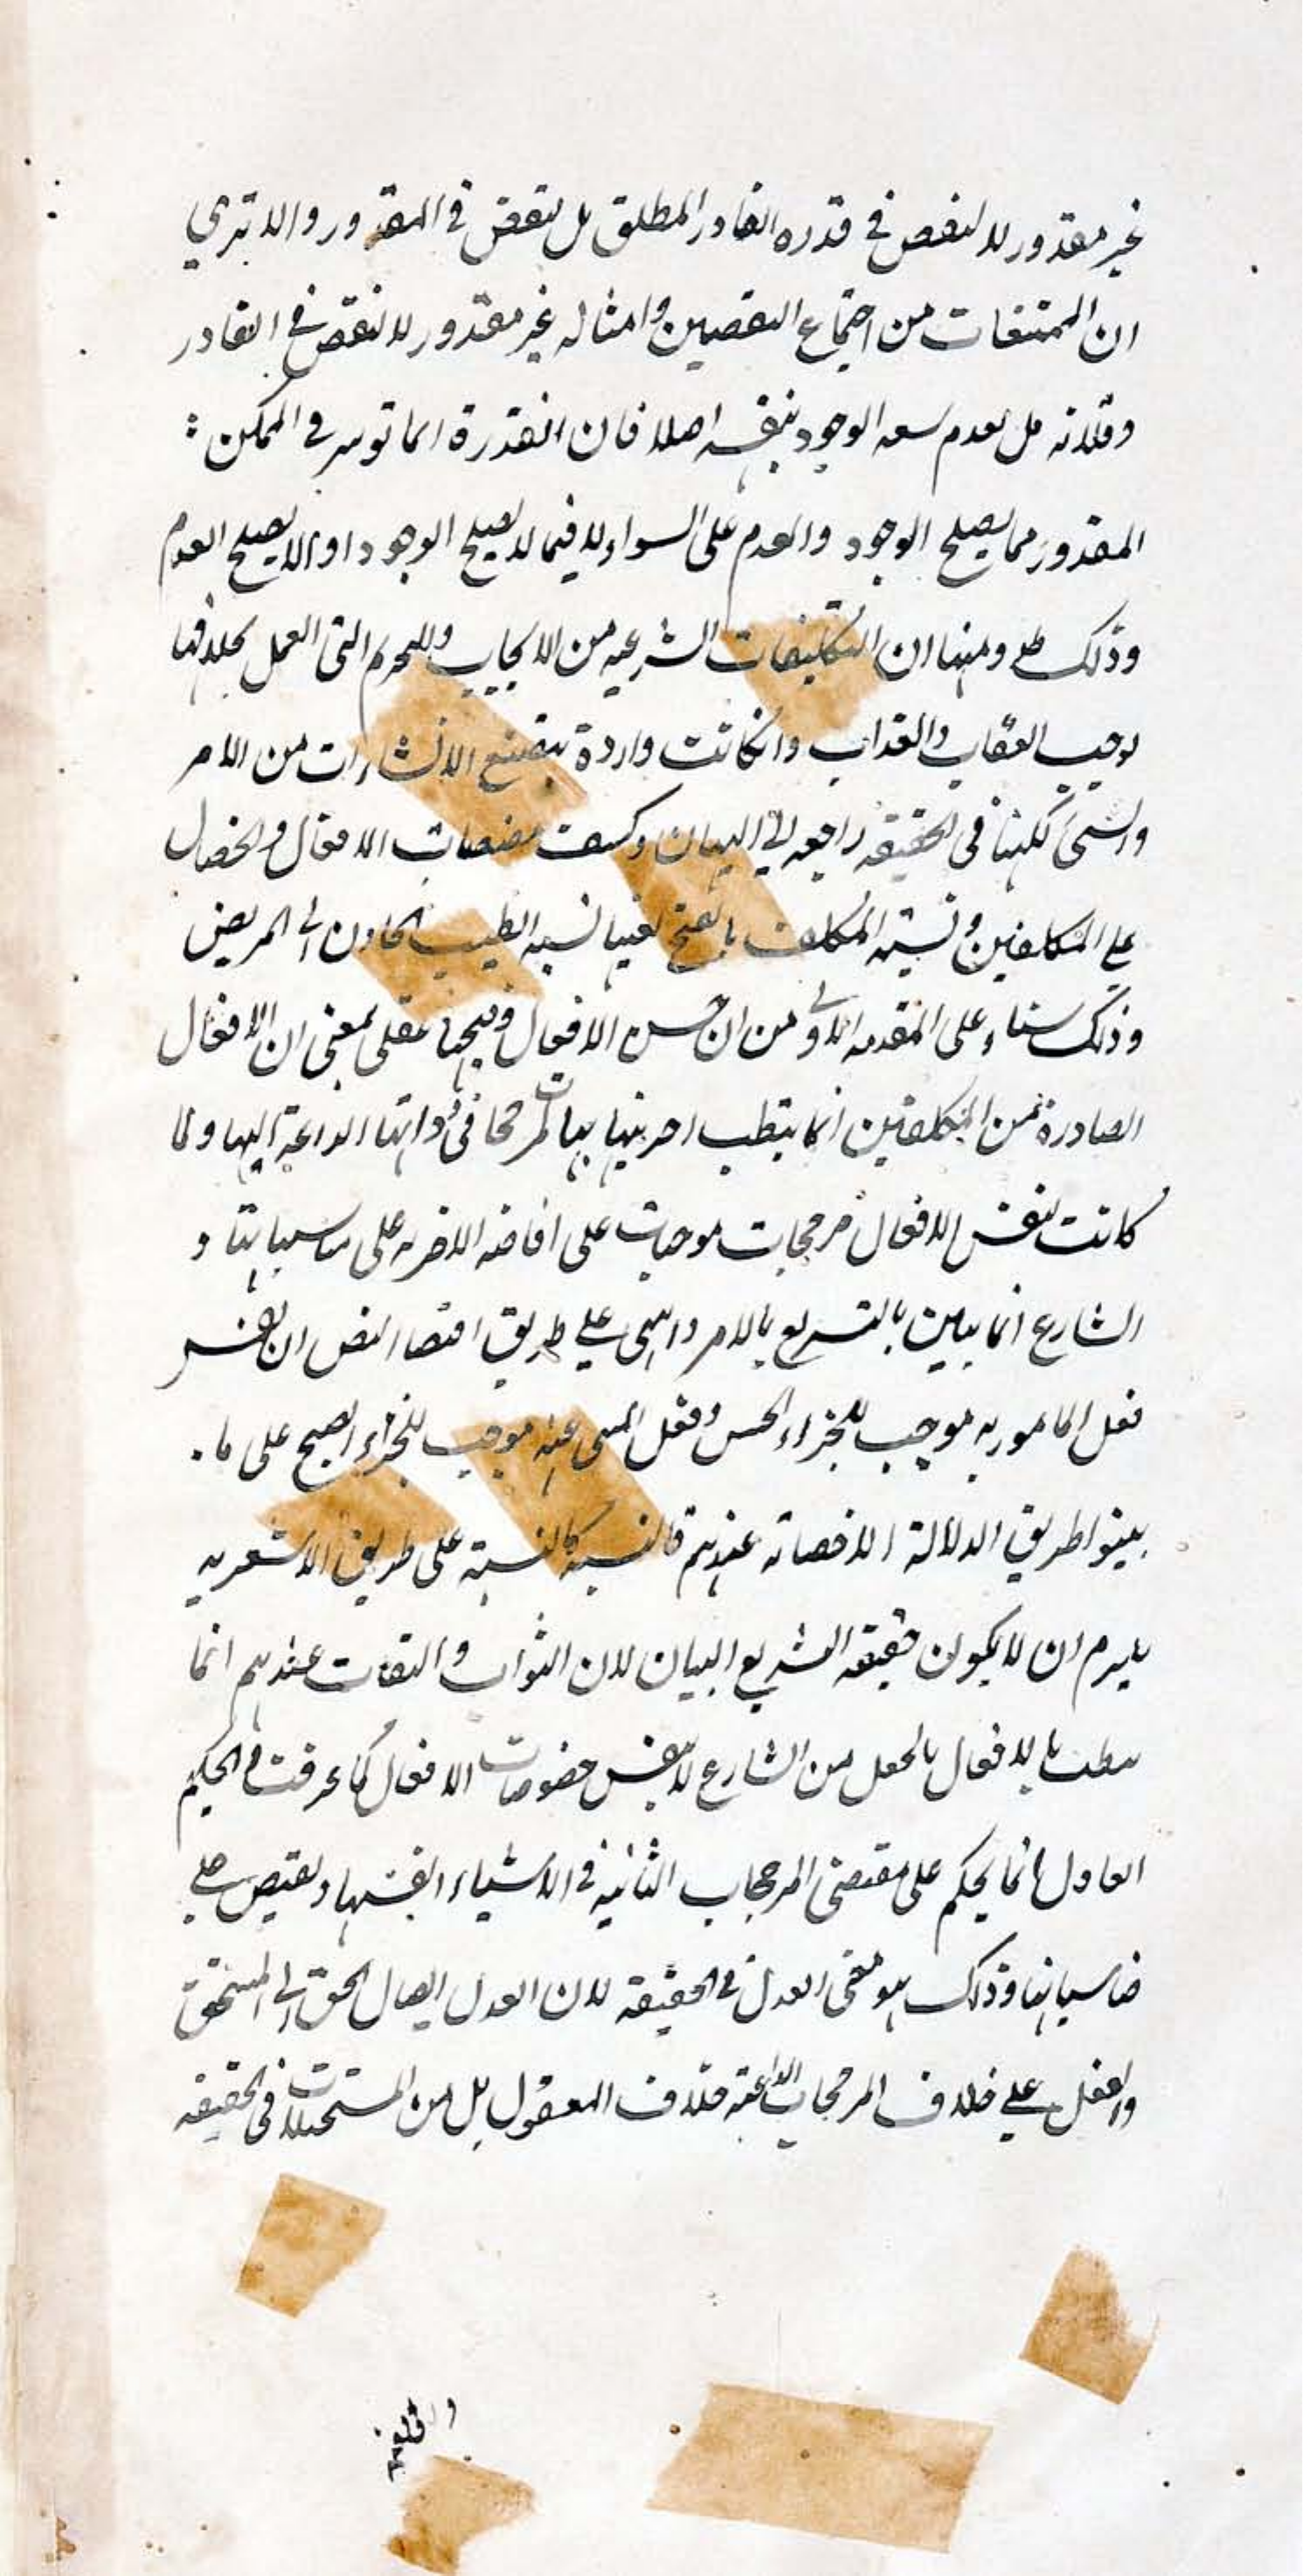 غير مقدور لا لنقص في قدرة القادر المطلق بل لنقص في المقدور والا ترى
ان الممتنعات من اجتماع النقيضين وامثاله غير مقدور لا لنقص في القادر
وقدرته بل لعدم سعة الوجود بنفسه اصلا فان القدرة انما توثر في الممكن :
المقدور مما يصلح الوجود والعدم على السواء لا فيما لا يصلح الوجود او لا يصلح العدم
وذلك ظ ومنها ان التكليفات الشرعيه من الايجاب والتحريم التي العمل بخلافها
يوجب العقاب والعذاب وان كانت واردة بصيغ الانشاءات من الامر
والنهي لكنها في الحقيقه راجعه الى البيان وكشف مقتضيات الافعال والخصال
على المكلفين ونسبته المكلف بالفتح نسبه الطبيب الحاذق الى المريض
وذلك بناء على المقدمه الاولى من ان حسن الافعال وقبحها عقلي بمعنى ان الافعال
الصادرة من المكلفين انما يتطلب اجزيتها بمرجحات في ذواتها الداعية اليها ولما
كانت نفس الافعال مرجحات موجبات على افاضه الاجزيه على مناسباتها و
الشارع انما يبين بالتشريع بالامر والنهي على طريق اقتضاء النص ان نفس
فعل المامور به موجب للجزاء الحسن وفعل المنهى عنه موجب للجزاء القبيح على ما
بينوا طريق الدلالة الاقتضائه عندهم فالنسبة كالنسبة على طريق الاشعريه
يلزم ان لا يكون حقيقه التشريع البيان لان الثواب والعقاب عندهم انما
بالافعال بالجعل من الشارع لا بنفس خصوصيات الافعال كما عرفت في الحكيم
العادل انما يحكم على مقتضى المرجحات الثابته في الاشياء انفسها ويفيض على
مناسباتها وذلك هو معنى العدل في الحقيقه لان العدل ايصال الحق الى المستحق
والفعل على خلاف المرجحات الداعيه خلاف المعقول بل من المستحيلات في الحقيقه